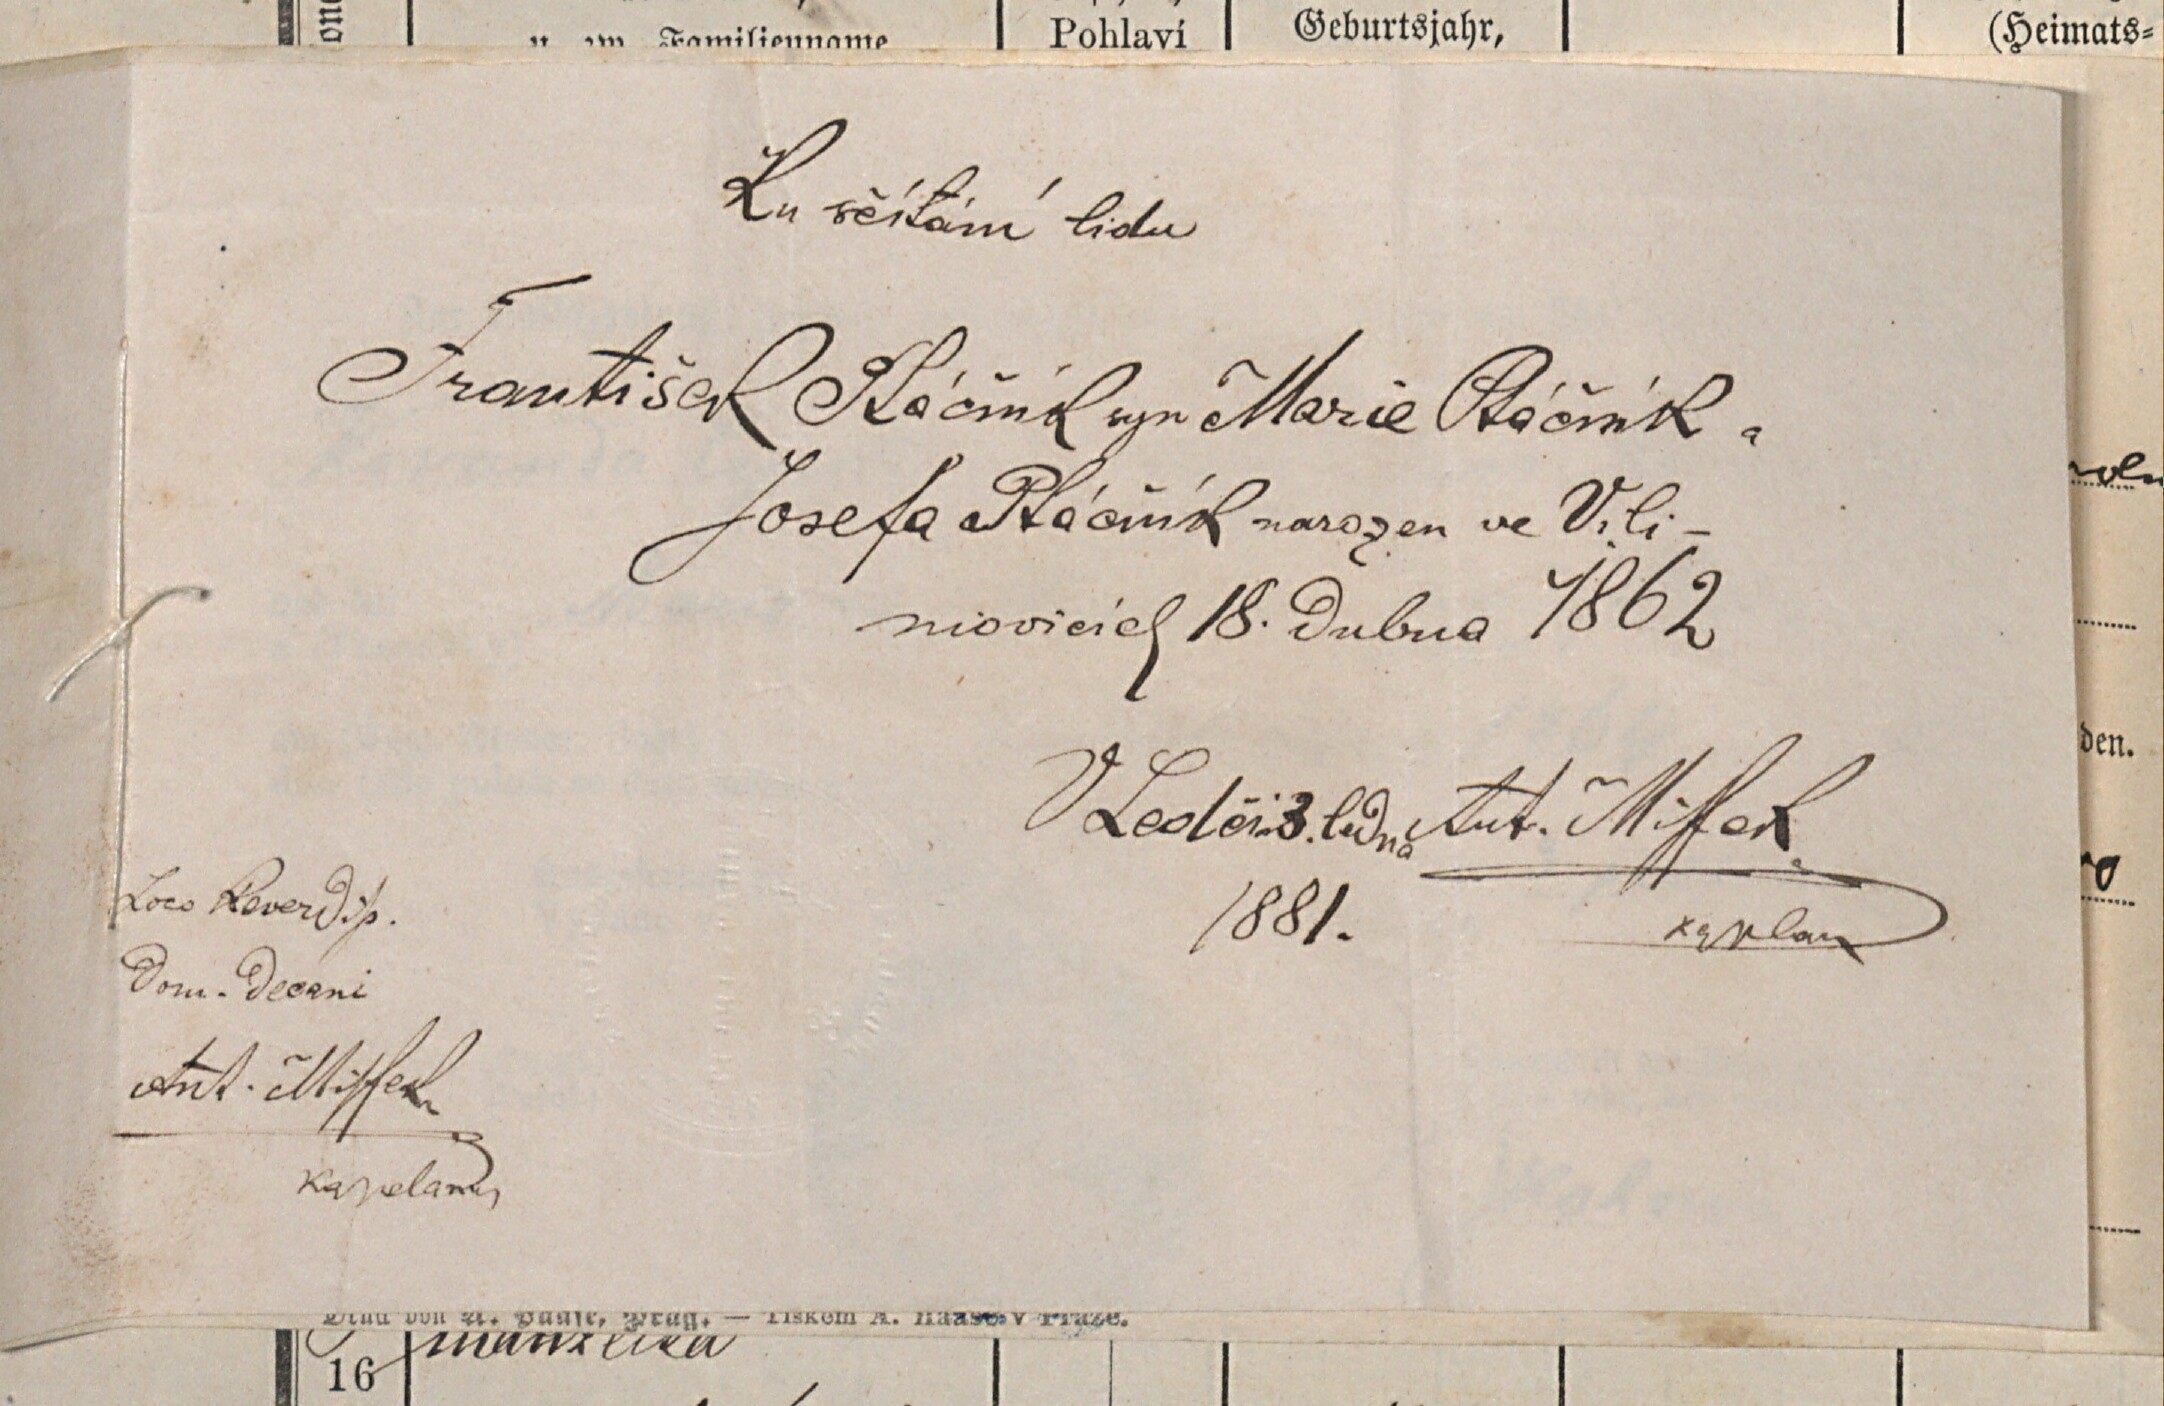 u. zw. Familienname
Pohlaví
Geburtsjahr,
(Heimats-
Ku sčítání lidu
František Ptáčník syn Marie Ptáčník a
Josefa Ptáčník narozen ve Vili-
niovicích 18. Dubna 1862
V Ledči 3. ledna Ant. Miffek
1881. kaplan
Loco Reverdip.
Dom. Decani
Ant. Miffek
Kapelanus
den.
Druck von A. Haase, Prag. — Tiskem A. Haase v Praze.
16 manželka